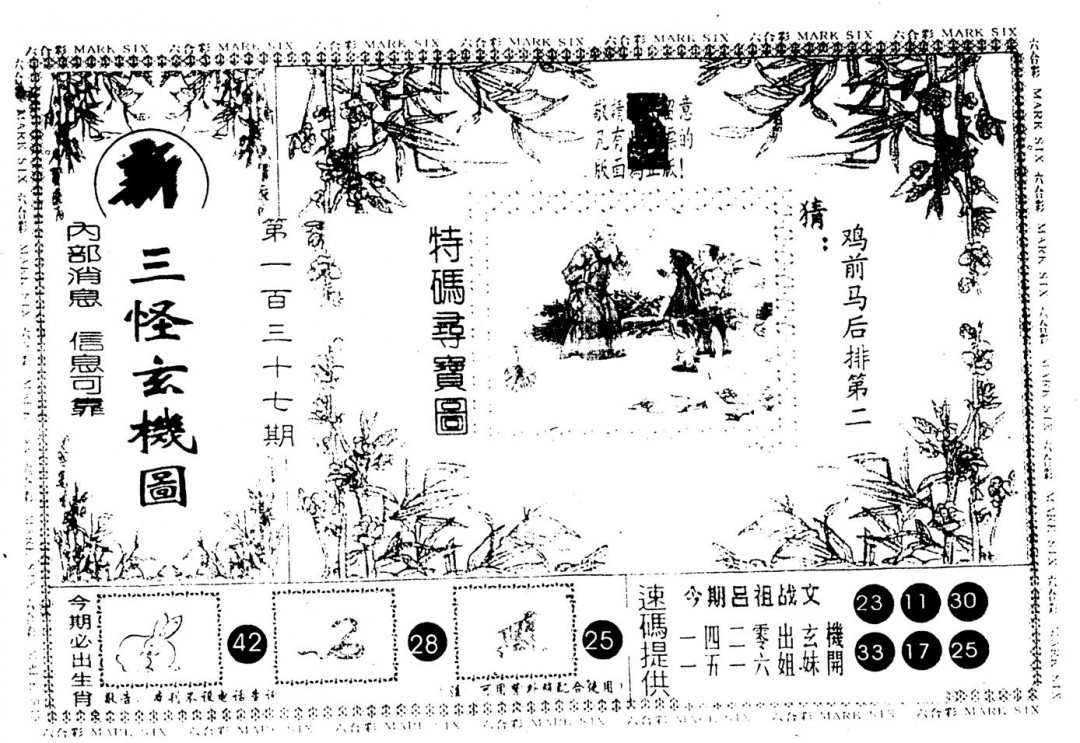 六合彩 MARK SIX 六合彩 MARK SIX 六合彩 MARK SIX 六合彩 MARK SIX 六合彩 MARK SIX 六合彩 MARK SIX 六合彩 MARK SIX
新
三怪玄機圖
內部消息 信息可靠
第一百三十七期
敬请 意
凡有 的
版面 版!
特碼尋寶圖
猜:
鸡前马后排第二
今期必出生肖
42
28
25
敬告:
可用紫外线配合使用
速碼提供
今期吕祖战文
一四二零出玄機
一五一六姐妹開
23 11 30
33 17 25
六合彩 MARK SIX 六合彩 MARK SIX 六合彩 MARK SIX 六合彩 MARK SIX 六合彩 MARK SIX 六合彩 MARK SIX 六合彩 MARK SIX